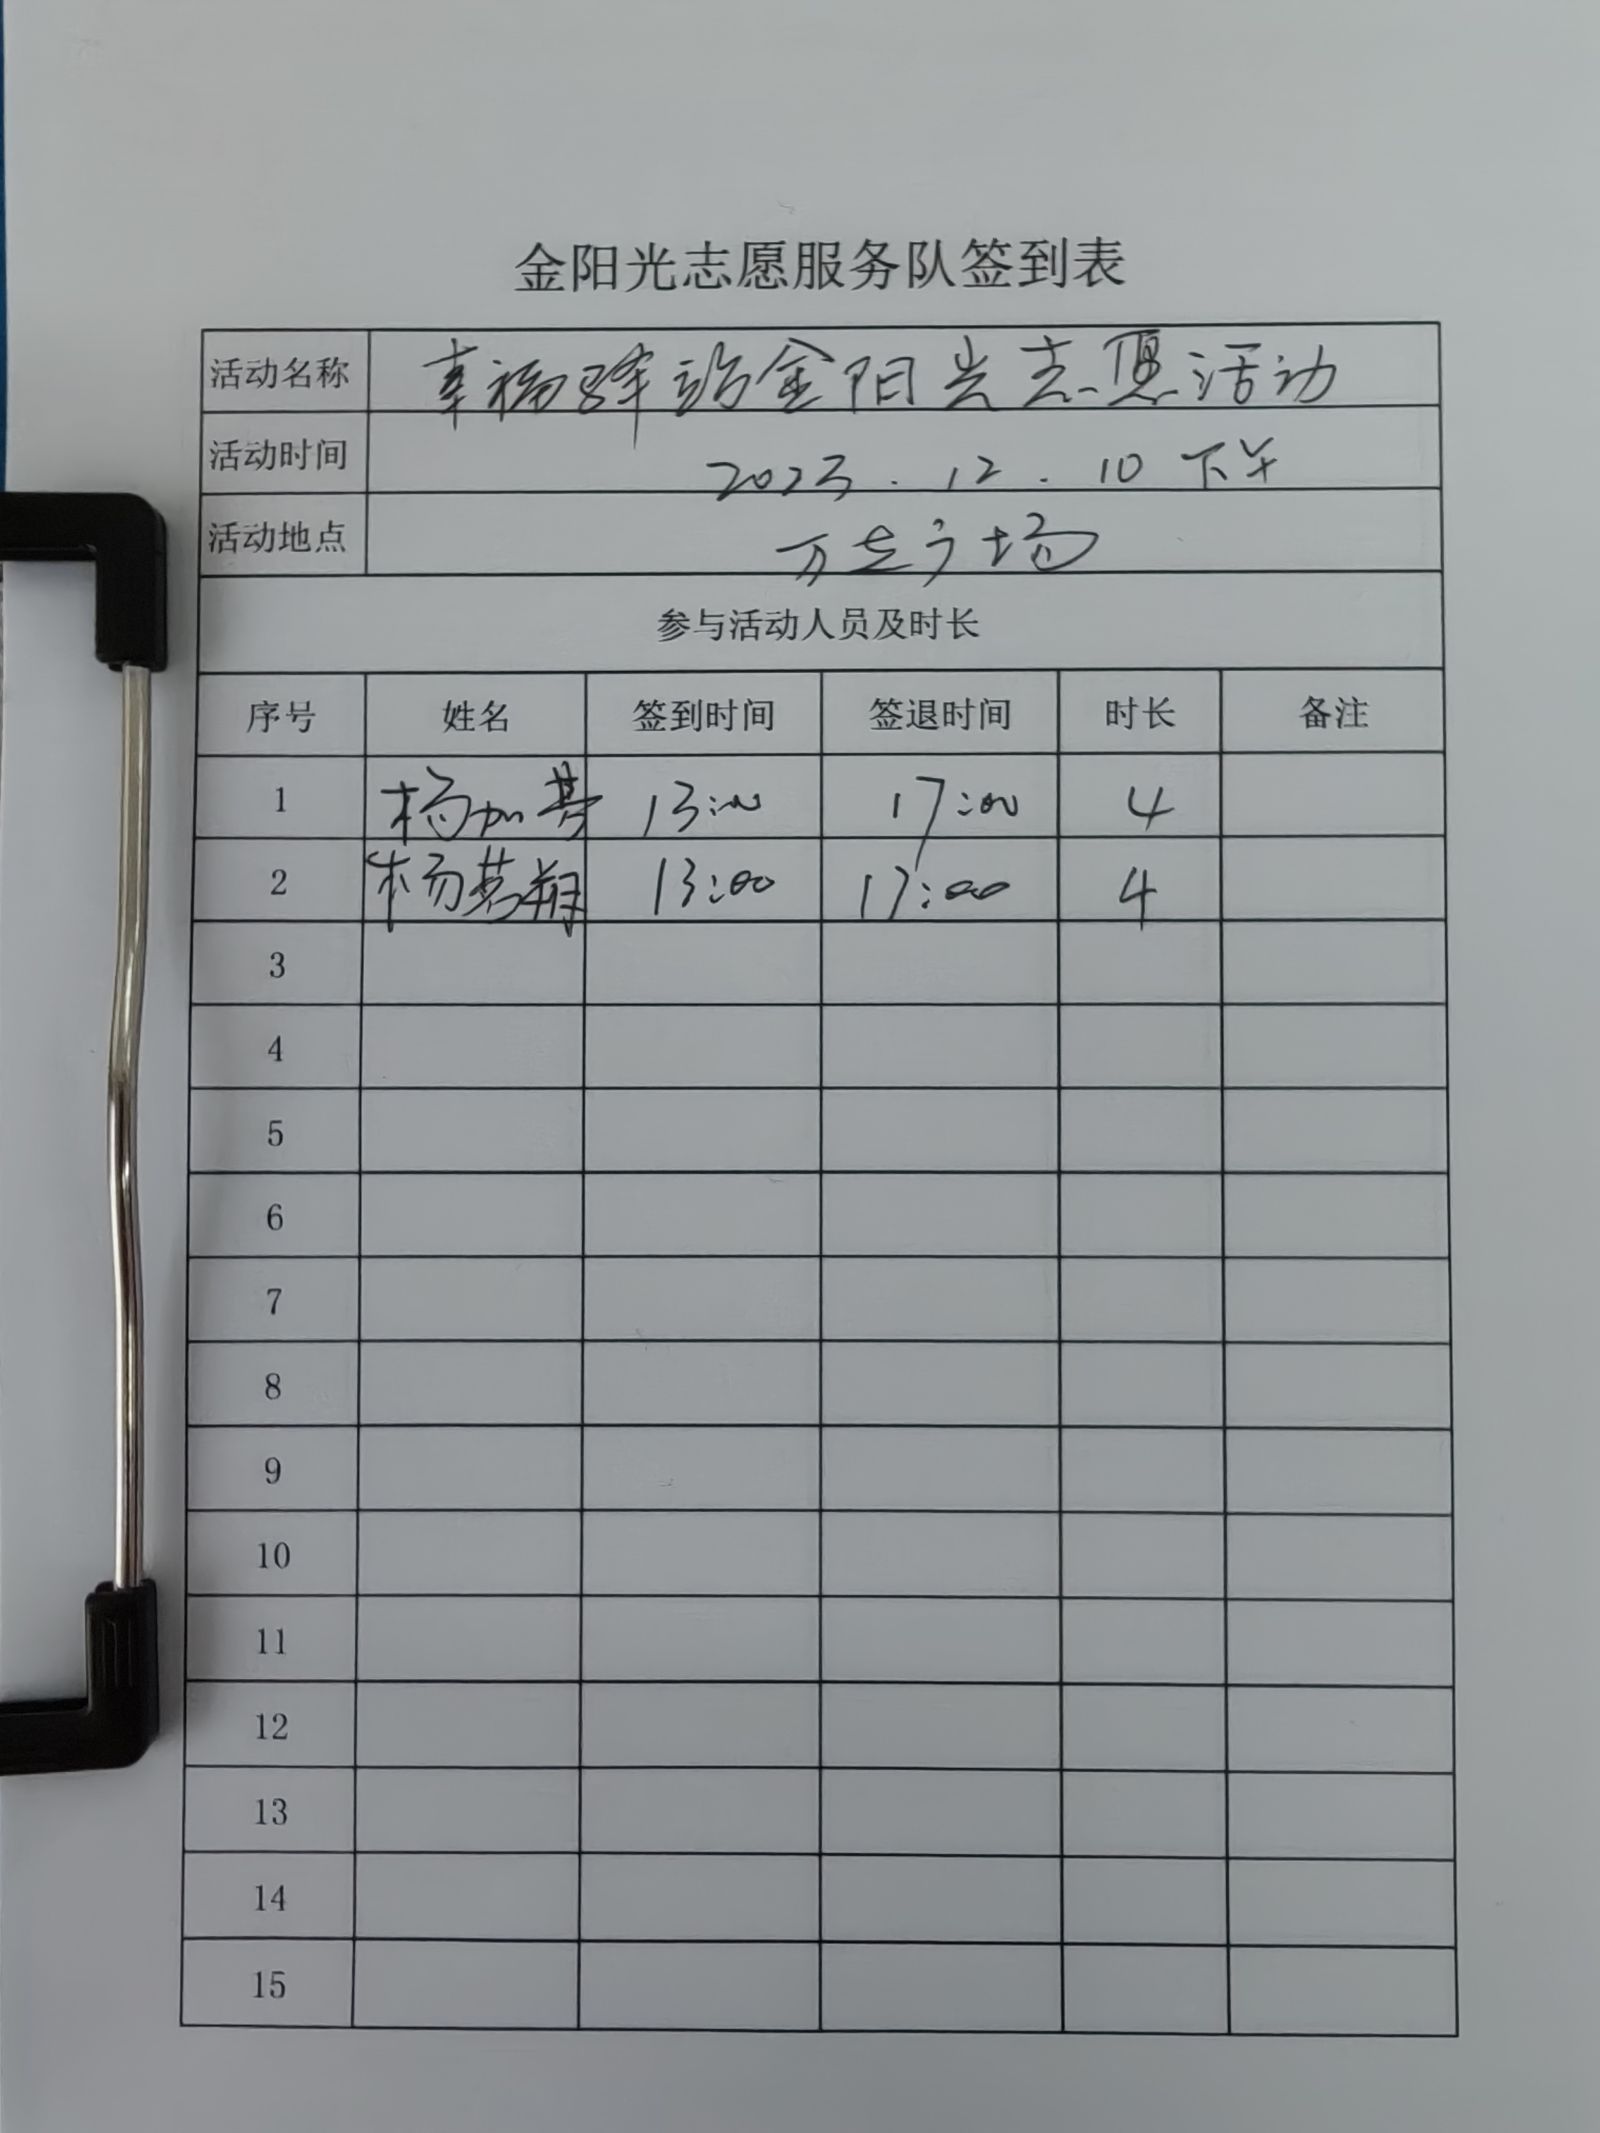 金阳光志愿服务队签到表
活动名称 幸福驿站金阳光志愿活动
活动时间 2023.12.10 下午
活动地点 万达广场
参与活动人员及时长
序号 姓名 签到时间 签退时间 时长 备注
1 杨加其 13:00 17:00 4
2 杨茗翔 13:00 17:00 4
3
4
5
6
7
8
9
10
11
12
13
14
15